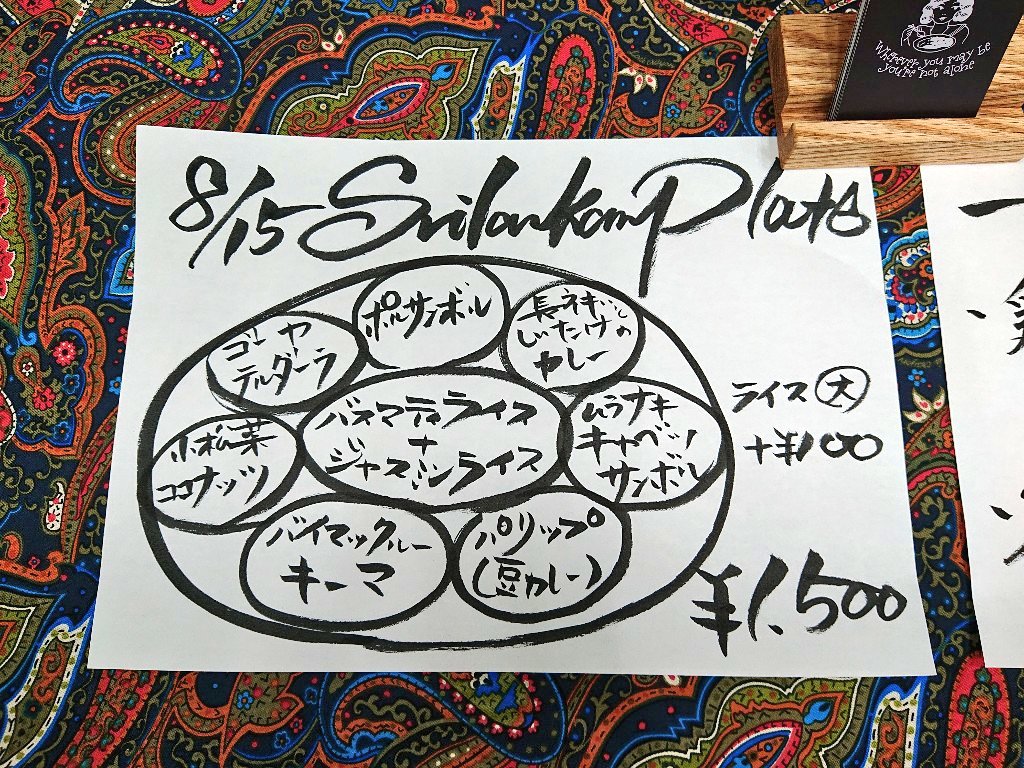 Wherever you may be
you're not alone
8/15 Srilankan Plate
ポルサンボル
長ネギと
しいたけの
カレー
ゴーヤ
テルダーラ
バスマティライス
+
ジャスミンライス
ムラサキ
キャベツ
サンボル
小松菜
ココナッツ
バイマックルー
キーマ
パリップ
(豆カレー)
ライス 大
+¥100
¥1,500